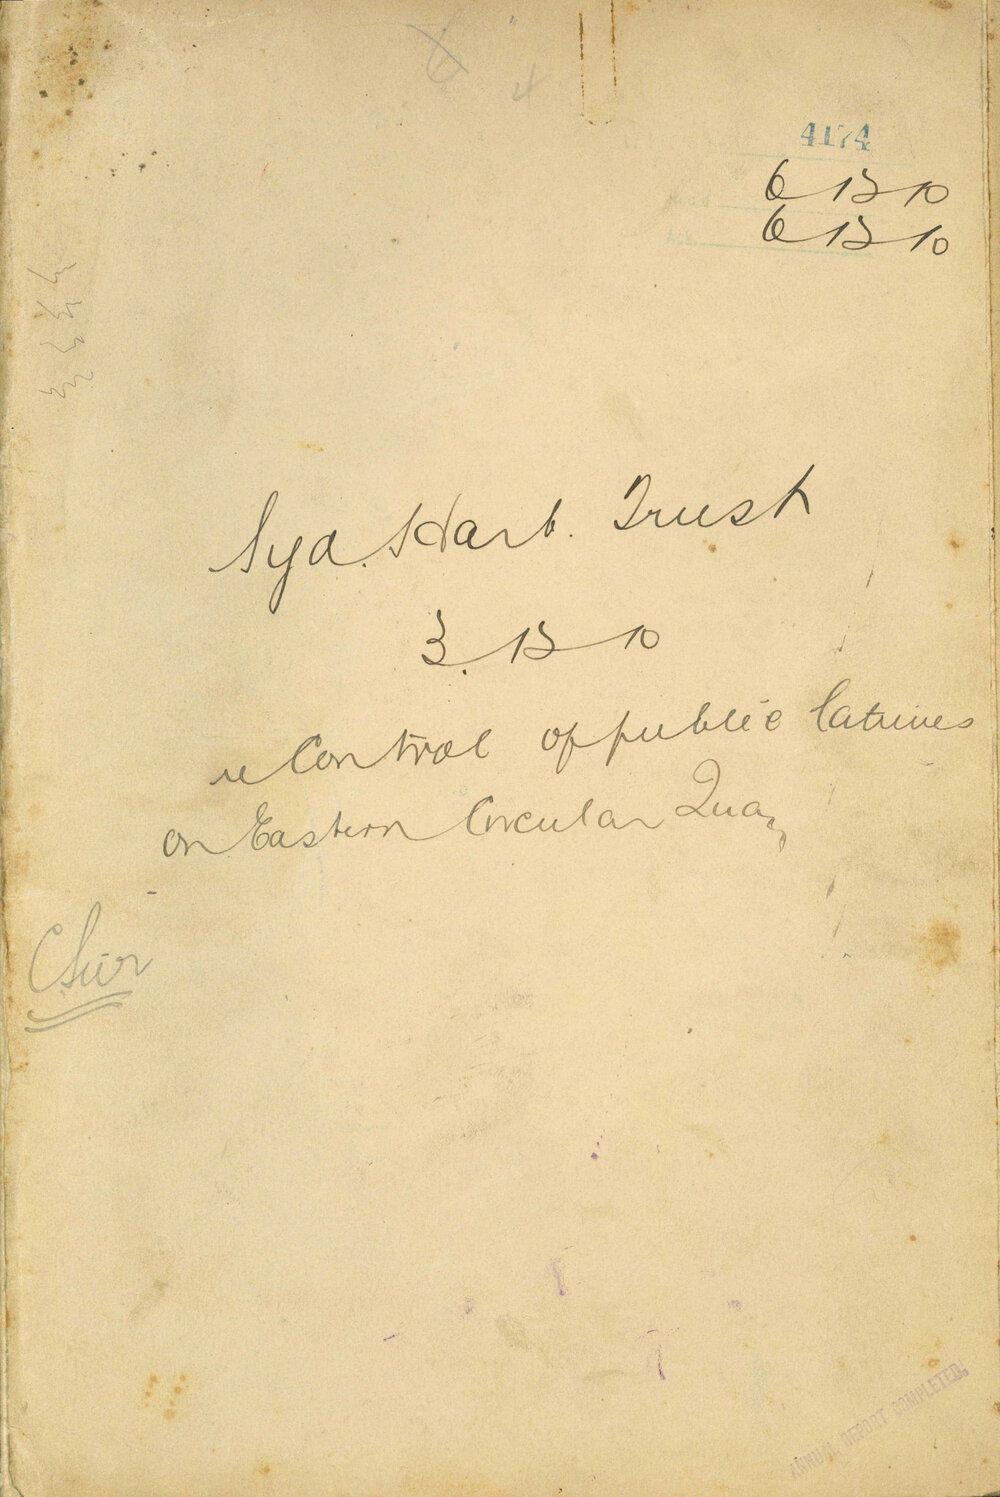 4174
6 12 10
6 12 10
Syd. Harb. Trust
3. 12 10
re Control of public latrines
on Eastern Circular Quay
ANNUAL REPORT COMPLETED.